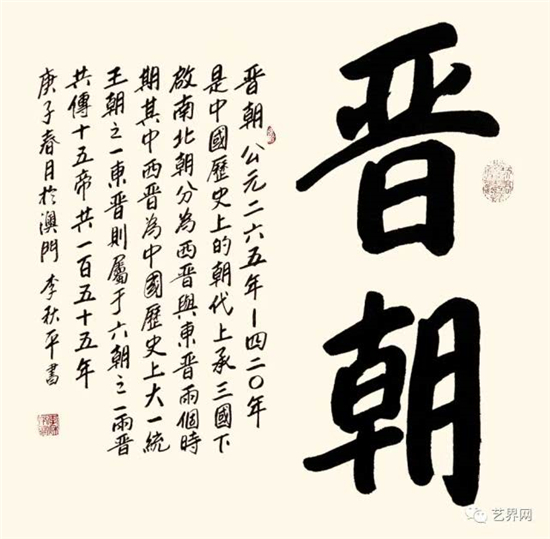 晋朝
晋朝公元二六五年－四二〇年
是中國歷史上的朝代上承三國下
啟南北朝分为西晋與東晋兩個時
期其中西晋為中國歷史上大一統
王朝之一東晋則屬于六朝之一兩晋
共傳十五帝共一百五十五年
庚子春月於澳門 李秋平書
艺界网